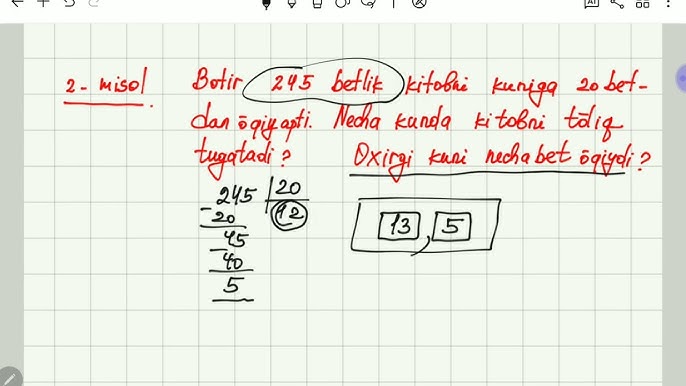 2- misol. Botir 245 betlik kitobni kuniga 20 bet-
dan ōqiyapti. Necha kunda kitobni tōliq
tugatadi? Oxirgi kuni necha bet ōqiydi?
245 | 20
- 20 12
45 13, 5
- 40
5